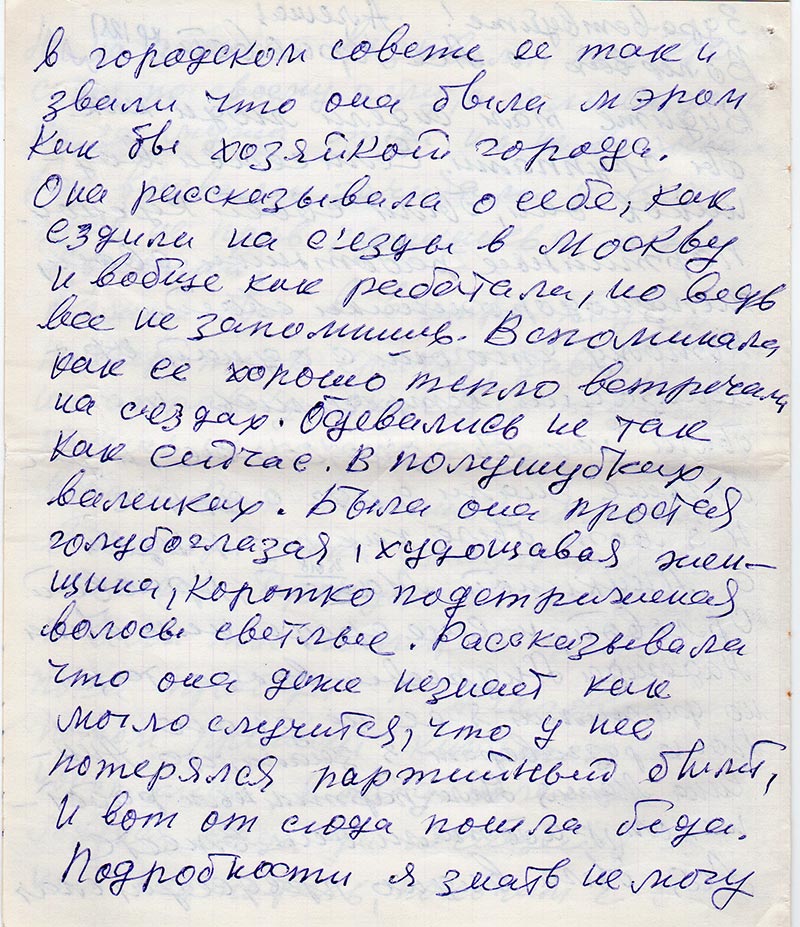 в городском совете ее так и
звали что она была мэром
как бы хозяйкой города.
Она рассказывала о себе, как
ездили на с'езды в Москву
и вобще как работали, но ведь
все не запомнишь. Вспоминала
как ее хорошо тепло встречали
на сездах. Одевались не так
как сейчас. В полушубках,
валенках. Была она простая
голубоглазая, худощавая жен-
щина, коротко подстриженая
волосы светлые. Рассказывала
что она даже незнает как
могло случится, что у нее
потерялся партийный билет,
И вот от сюда пошла беда.
Подробности я знать не могу